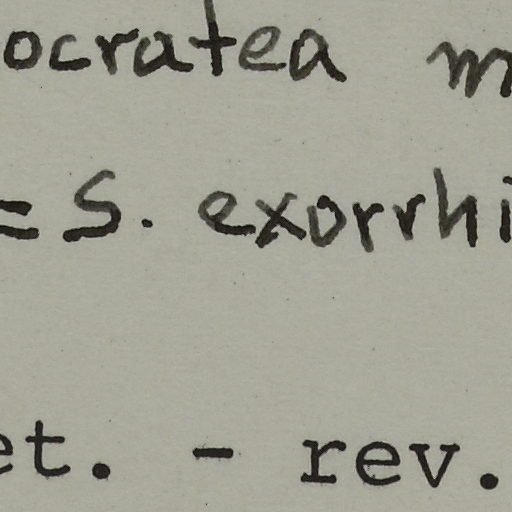 ocratea m
= S. exorrhi
et. - rev.